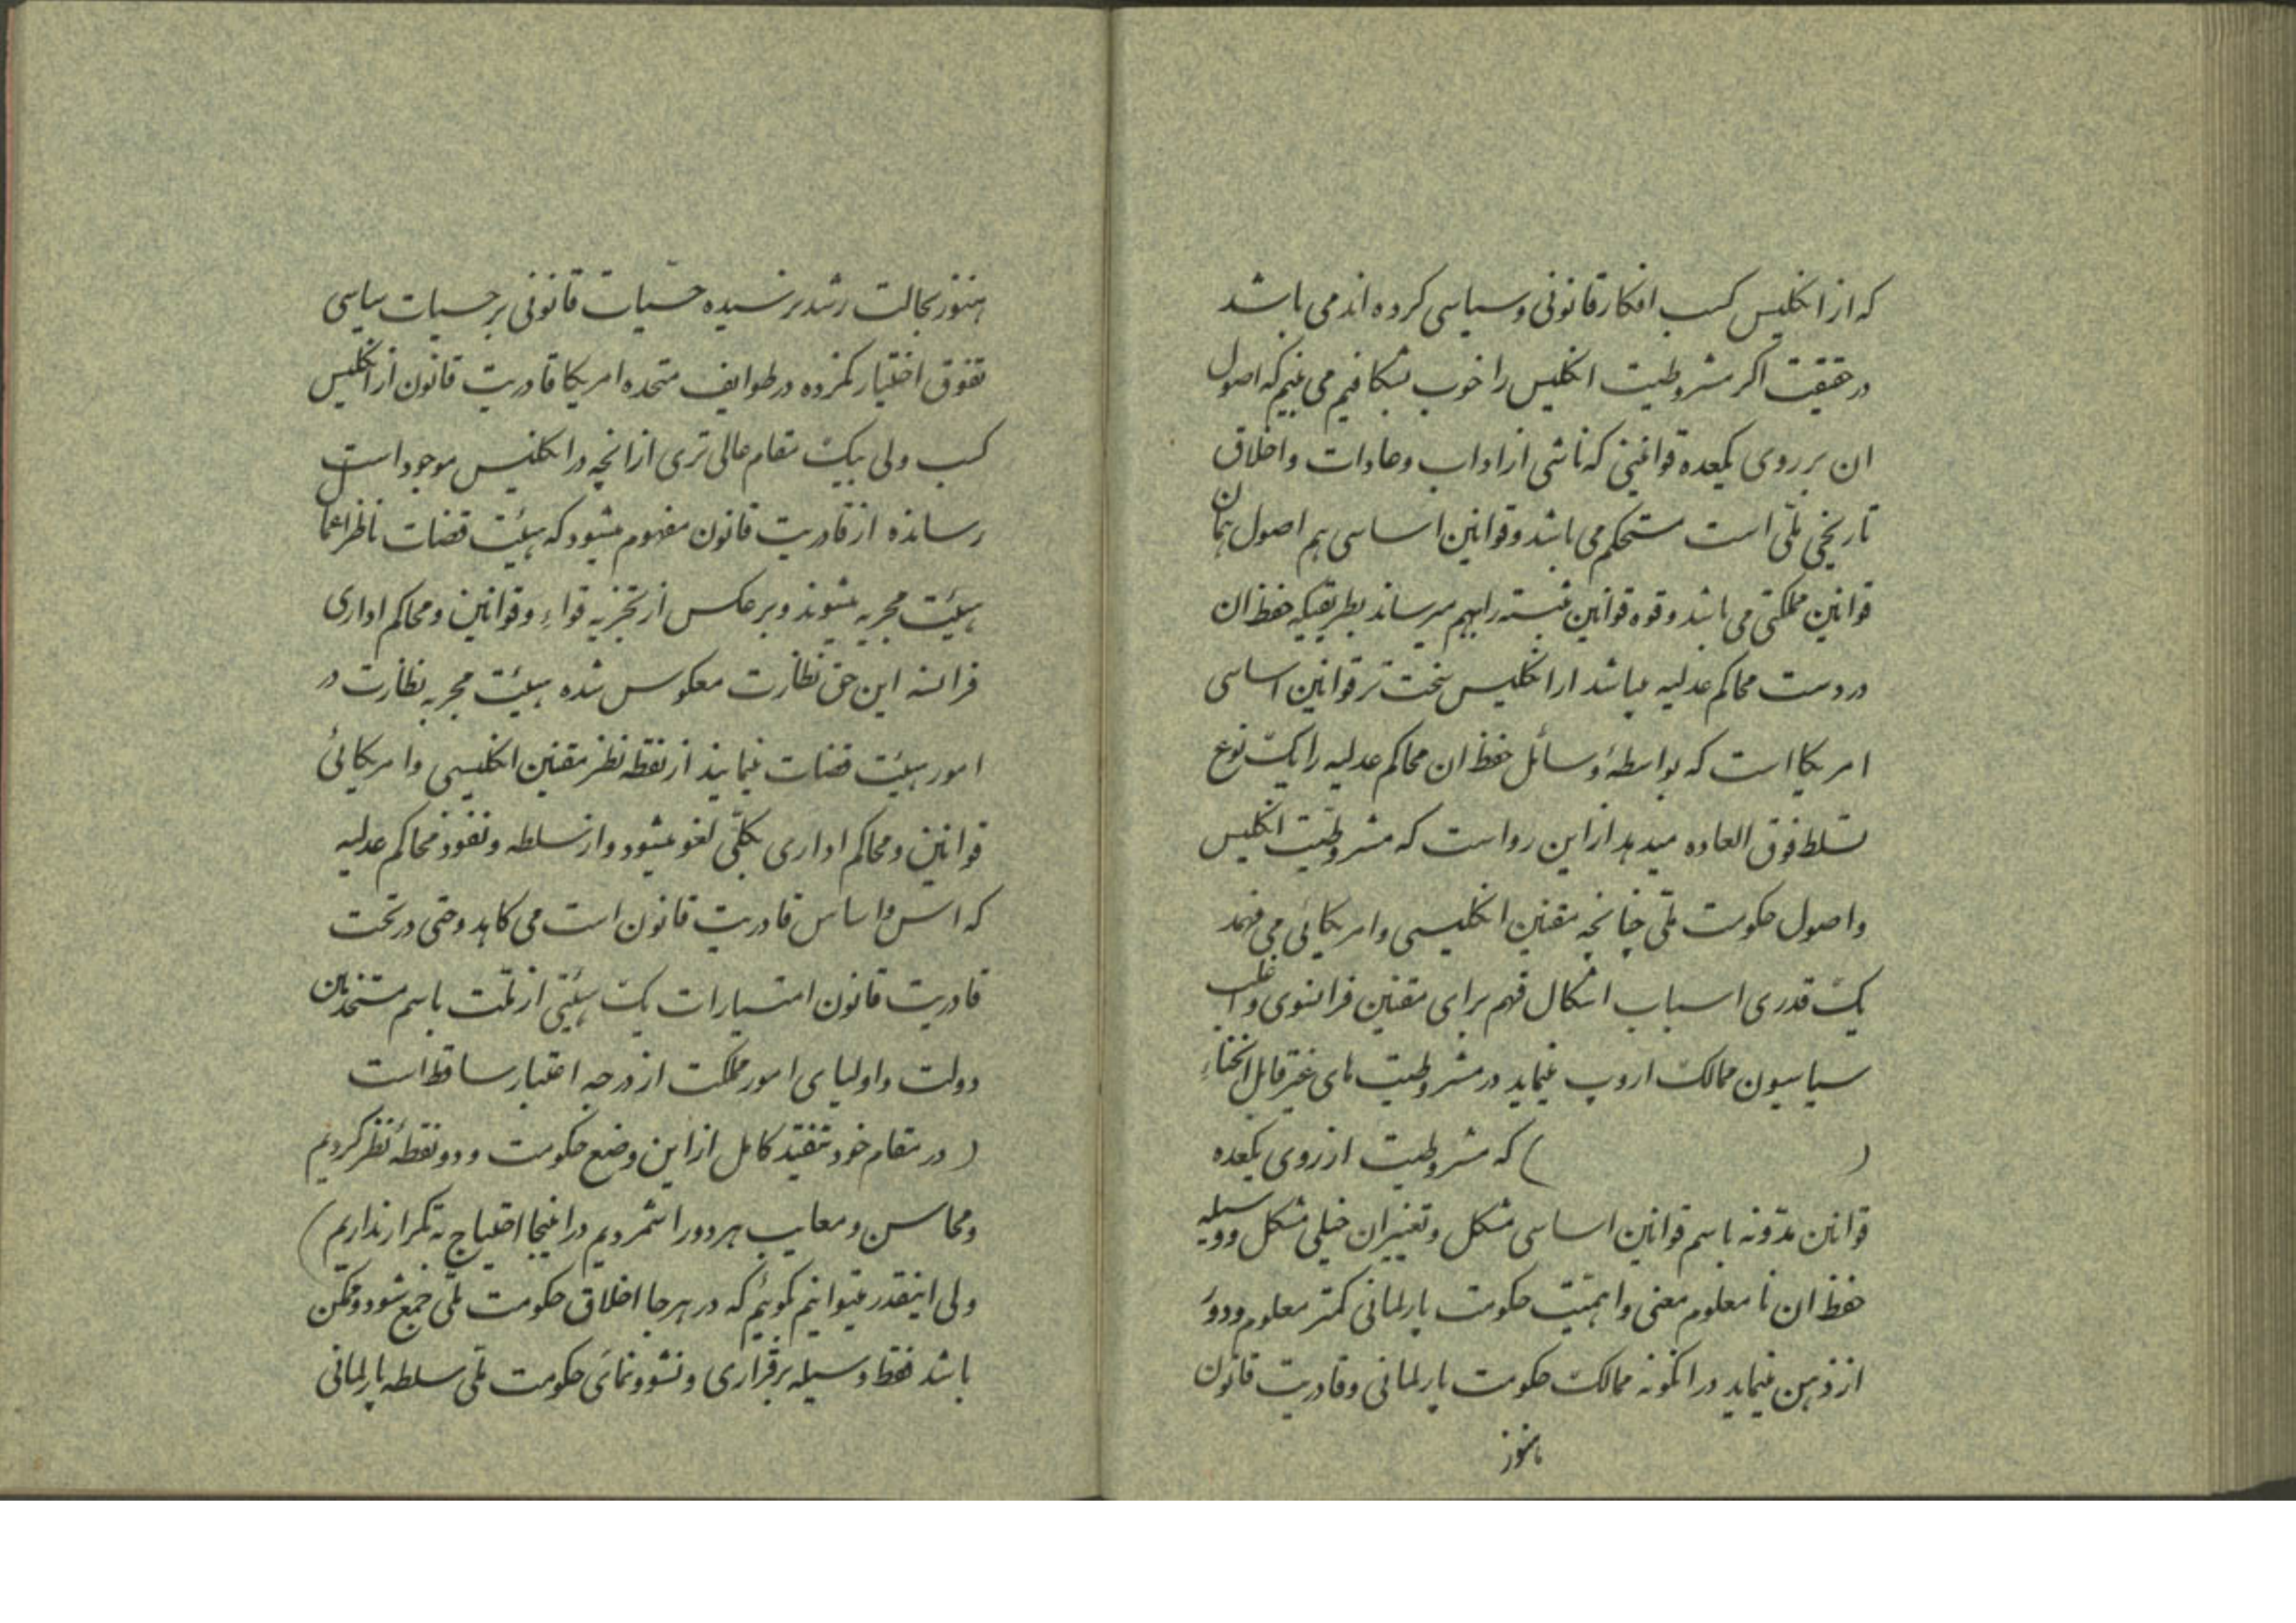 که از انگلیس کسب افکار قانونی و سیاسی کرده اند می باشد
در حقیقت اگر مشروطیت انگلیس را خوب بشکافیم می بینیم که اصول
ان بر روی یکعده قوانینی که ناشی از اداب و عادات و اخلاق
تاریخی ملّی است مستحکم می باشد و قوانین اساسی هم اصول همان
قوانین مملکتی می باشد و قوه قوانین را بهم میرساند بطریقیکه حفظ ان
در دست محاکم عدلیه میباشد از انگلیس سخت تر قوانین اساسی
امریکا است که بواسطهٔ وسائل حفظ ان محاکم عدلیه را یک نوع
تسلط فوق العاده میدهد از این رو است که مشروطیت انگلیس
و اصول حکومت ملّی چنانچه مقنین انگلیسی و امریکائی می فهمد
یک قدری اسباب اشکال فهم برای مقنین فرانسوی و اغلب
سیاسیون ممالک اروپ مینماید در مشروطیت های غیر قابل انحناء
( ) که مشروطیت از روی یکعده
قوانین مدوّنه باسم قوانین اساسی مشکل و تغییر ان خیلی مشکل و وسیله
حفظ ان نا معلوم معنی و اهمیّت حکومت پارلمانی کمتر معلوم و دور
از ذهن مینماید در انگونه ممالک حکومت پارلمانی و قادریت قانون
هنوز
هنوز بحالت رشد نرسیده حسیّات قانونی بر حسیات سیاسی
تفوق اختیار نکرده در طوایف متحده امریکا قادریت قانون از انگلیس
کسب ولی بیک مقام عالی تری از انچه در انگلیس موجود است
رسانده از قادریت قانون مفهوم میشود که هیئت قضات ناظر اعمال
هیئت مجریه میشوند و بر عکس از تجزیه قواء و قوانین و محاکم اداری
فرانسه این حق نظارت معکوس شده هیئت مجریه نظارت در
امور هیئت قضات مینمایند از نقطه نظر مقنین انگلیسی و امریکائی
قوانین و محاکم اداری بکلّی لغو میشود و از سلطه و نفوذ محاکم عدلیه
که اسّ و اساس قادریت قانون است می کاهد و حتی در تحت
قادریت قانون امتیازات یک هیئتی از ملّت باسم مستخدمین
دولت و اولیای امور مملکت از درجه اعتبار ساقط است
( در مقام خود تنقید کامل از این وضع حکومت و دو نقطهٔ نظر کردیم
و محاسن و معایب هر دو را شمردیم در اینجا احتیاج به تکرار نداریم )
ولی اینقدر میتوانیم گوئیم که در هر جا اخلاق حکومت ملّی جمع شود و ممکن
باشد فقط وسیله برقراری و نشو و نمای حکومت ملّی سلطه پارلمانی